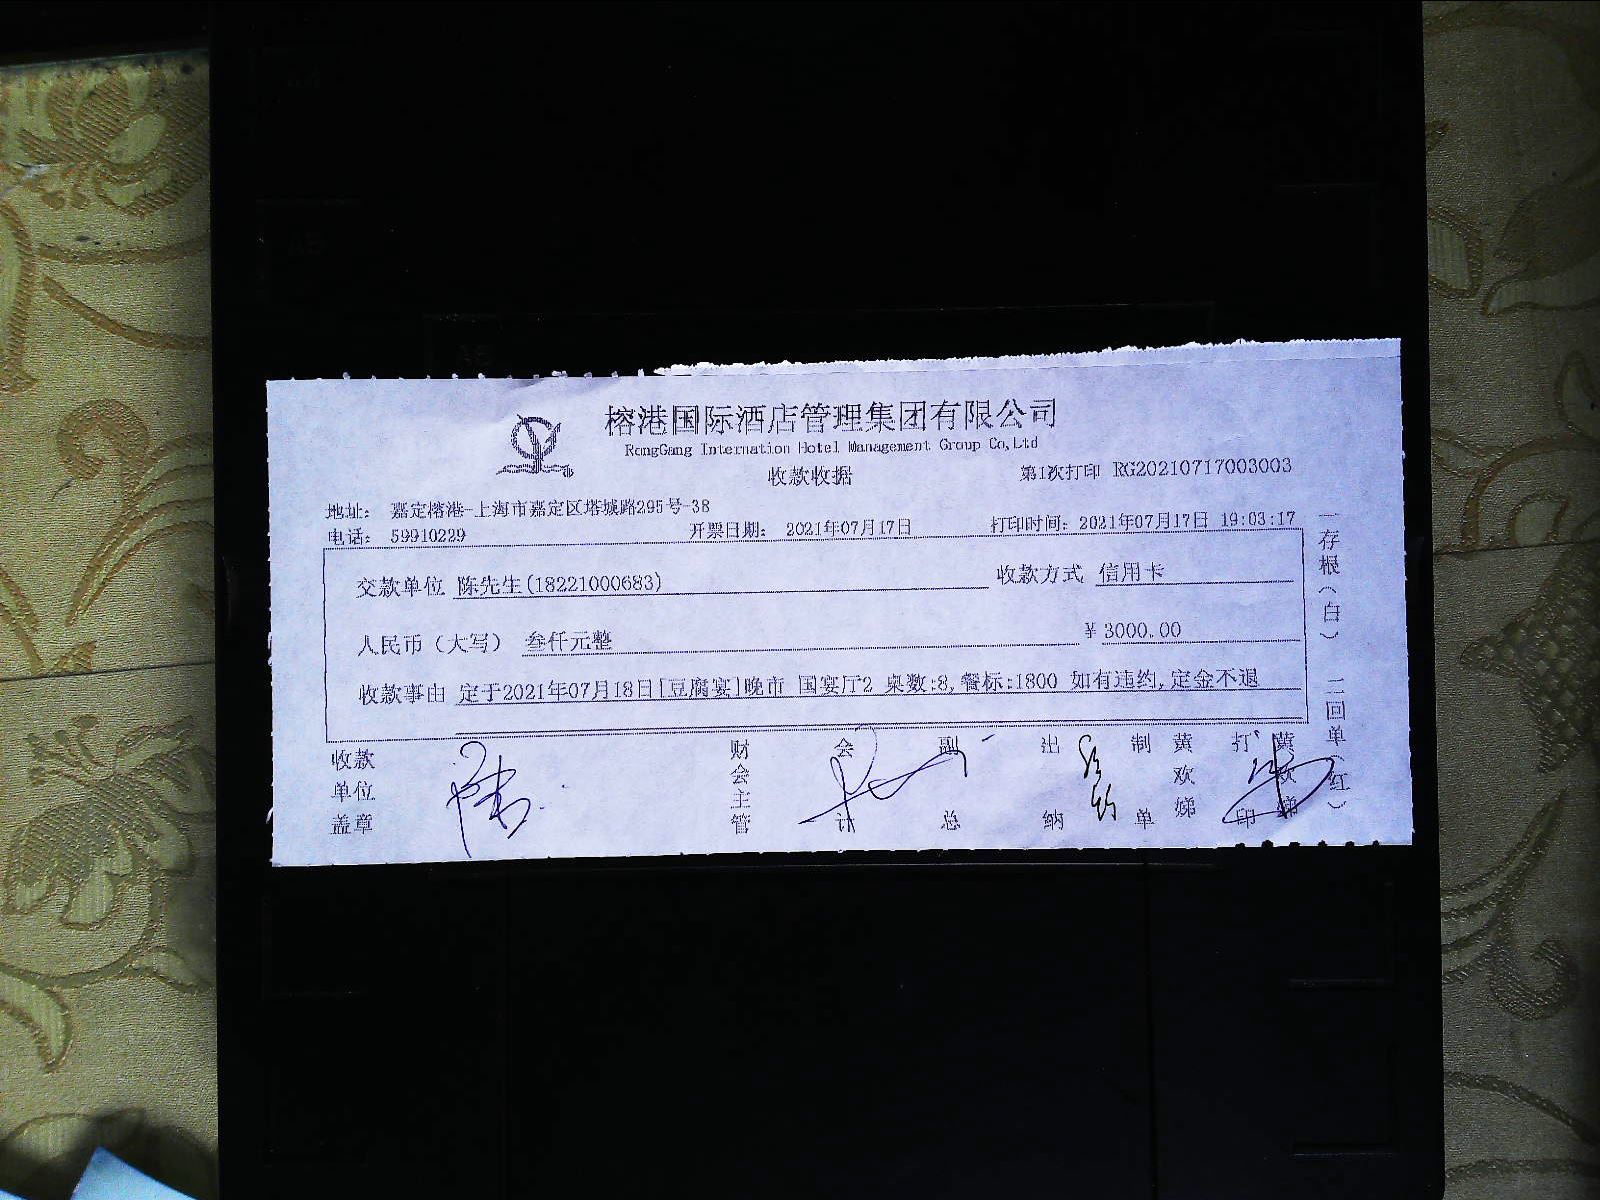 榕港国际酒店管理集团有限公司
RongGang Internation Hotel Management Group Co,Ltd
收款收据 第1次打印 RG20210717003003
地址: 嘉定榕港-上海市嘉定区塔城路295号-38
电话: 59910229 开票日期: 2021年07月17日 打印时间: 2021年07月17日 19:03:17
交款单位 陈先生(18221000683) 收款方式 信用卡
人民币(大写) 叁仟元整 ¥ 3000.00
收款事由 定于2021年07月18日[豆腐宴]晚市 国宴厅2 桌数:8,餐标:1800 如有违约,定金不退
收款单位盖章 财会主管 会计 副总 出纳 制单 黄欢娣 打印 黄欢娣
一存根(白) 二回单(红)